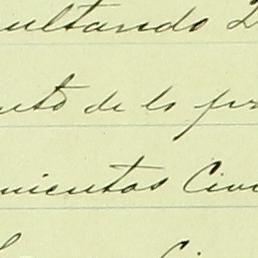 ultando
nto de lo pr
mientos Civi